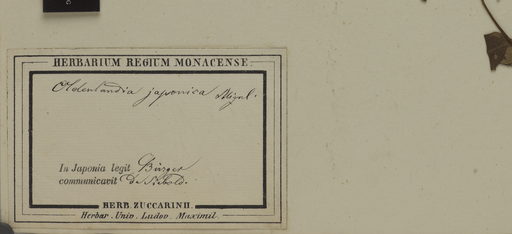 HERBARIUM REGIUM MONACENSE
Oldenlandia japonica Miqul.
In Japonia legit Bürger
communicavit de Siebold.
HERB. ZUCCARINII.
Herbar. Univ. Ludov. Maximil.